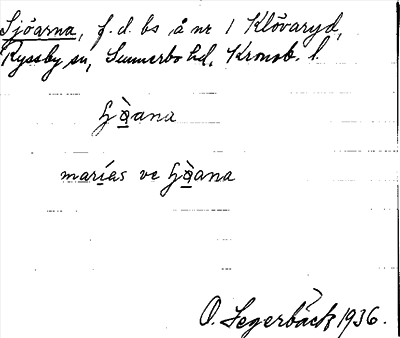 Sjöarna, f.d. bs å nr 1 Klövaryd,
Ryssby sn, Sunnerbo hd, Kronob. l.
ɧὰ̠ana
marías ve ɧὰ̠ana
O. Segerbäck 1936.